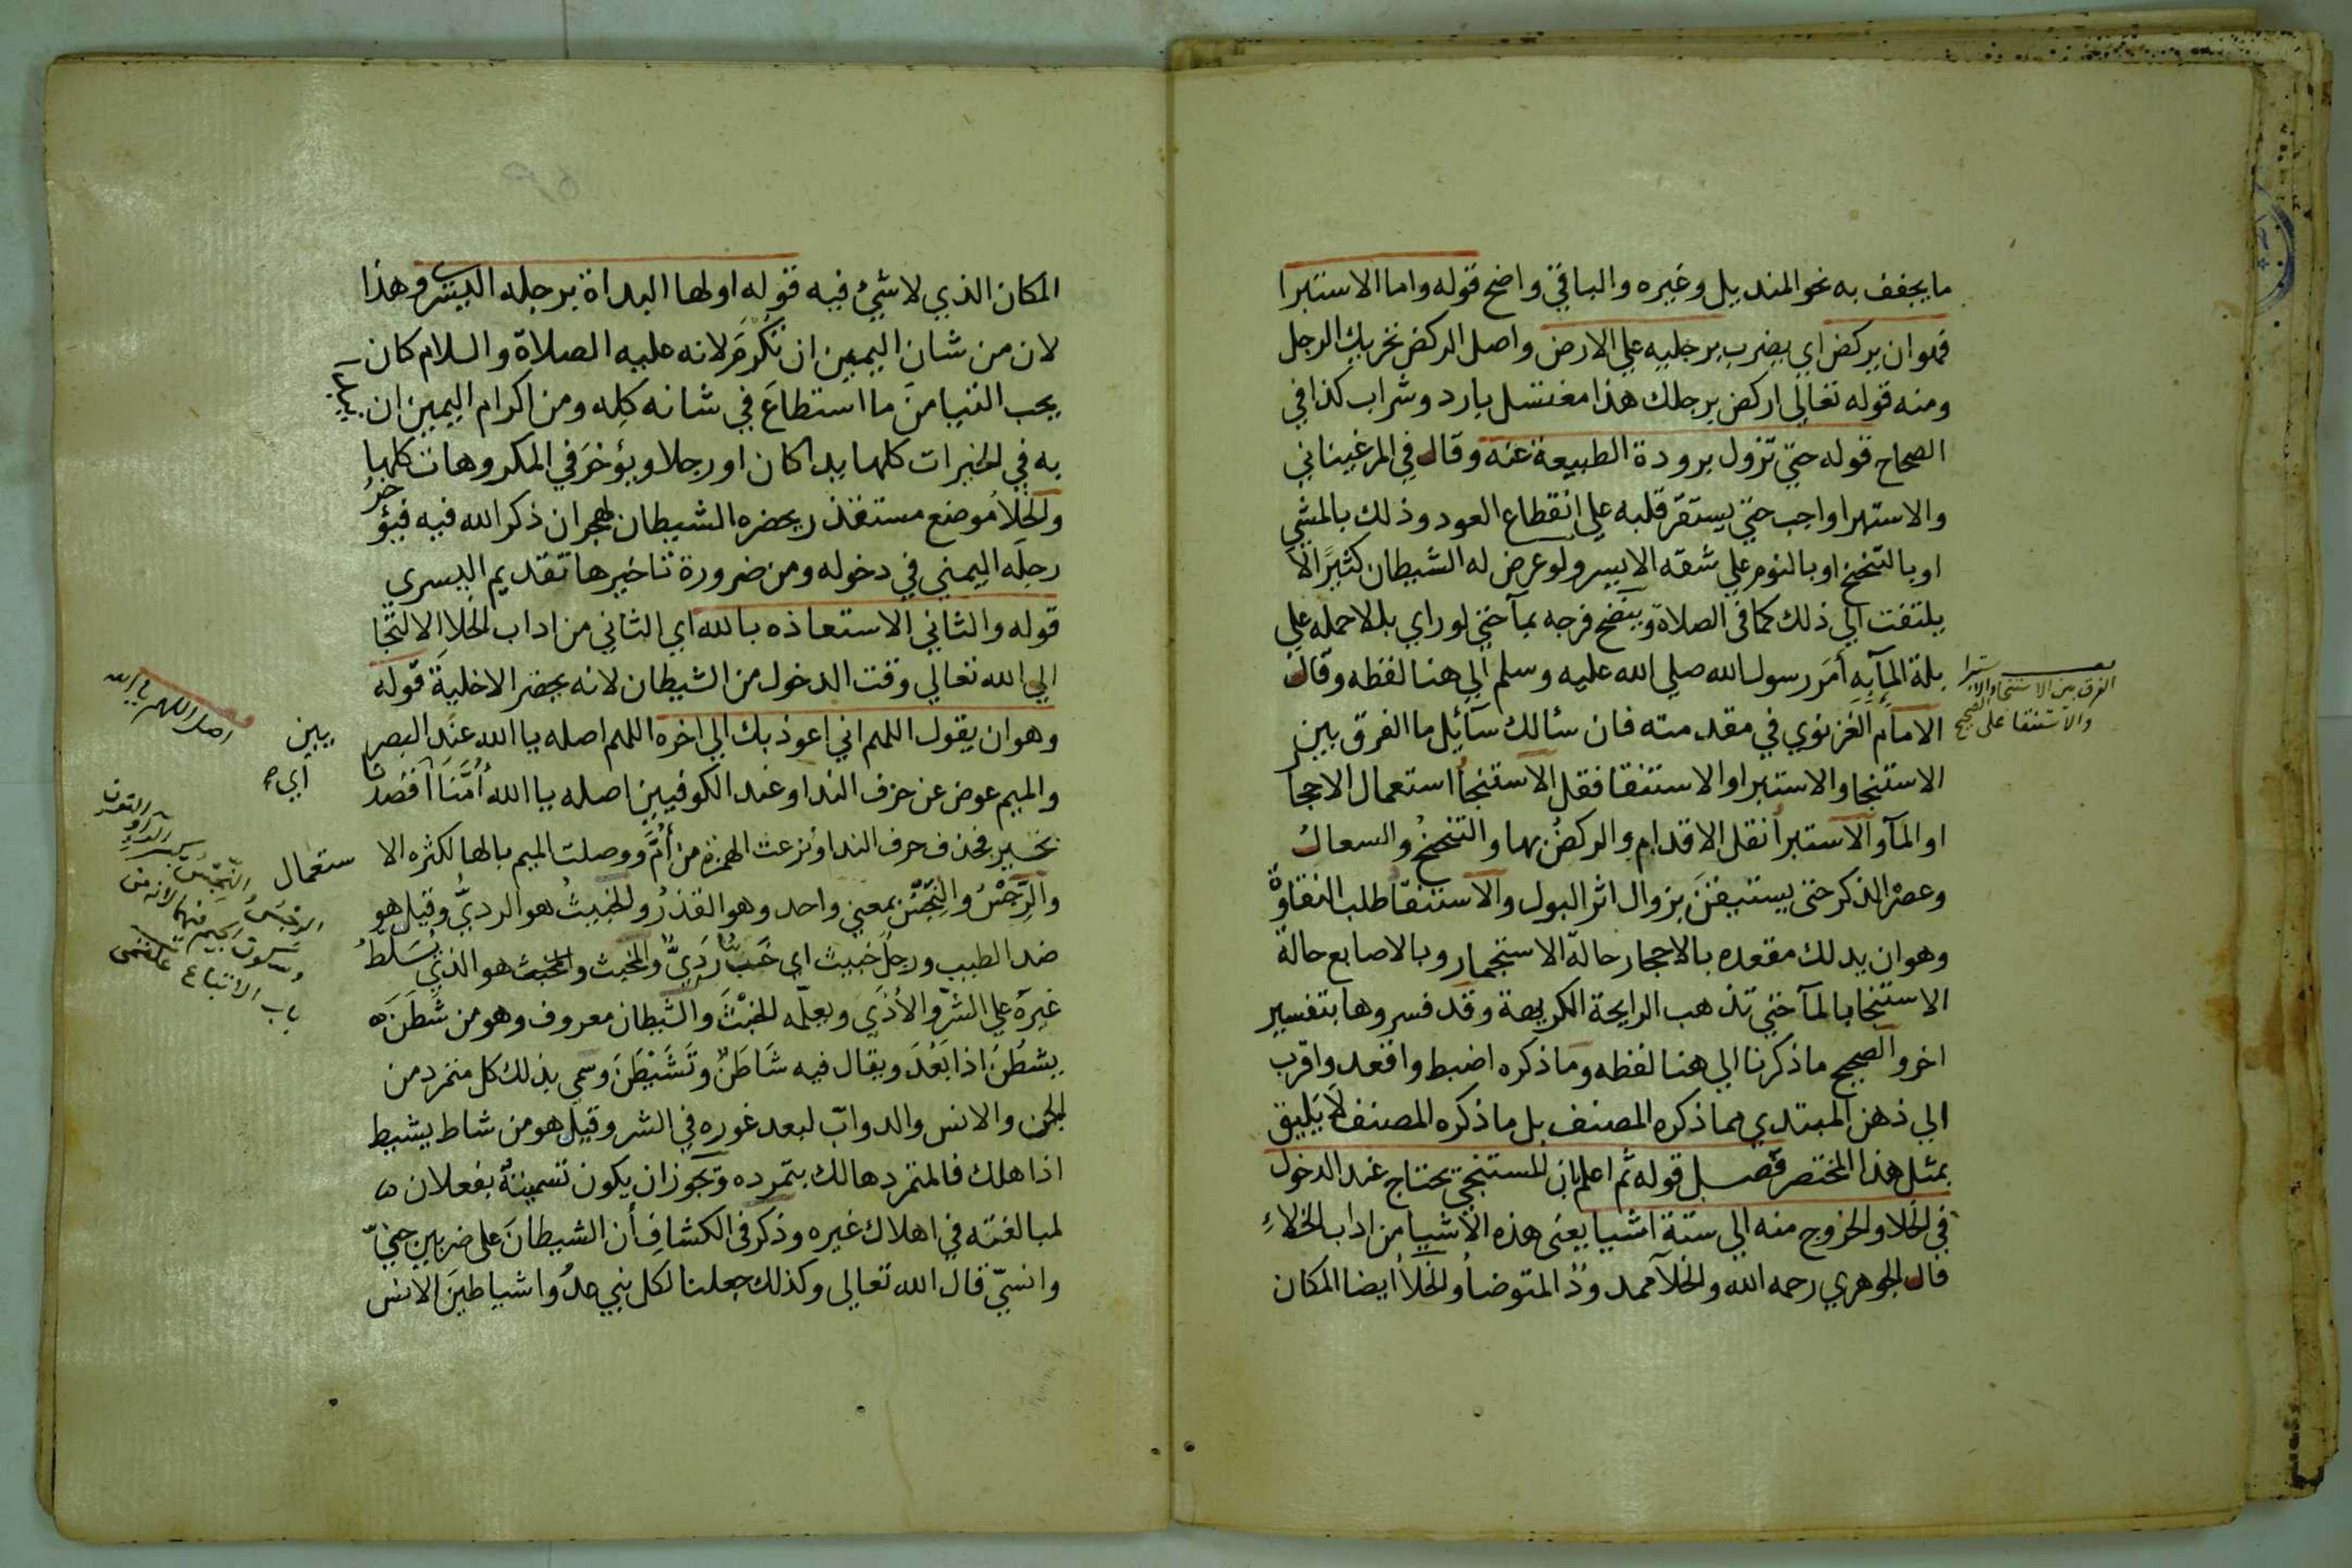 ما يجفف به نحو المنديل وغيره والباقي واضح قوله واما الاستبرا
فهو ان يركض اي يضرب برجليه علي الارض واصل الركض تحريك الرجل
ومنه قوله تعالي اركض برجلك هذا مغتسل بارد وشراب كذا في
الصحاح قوله حتي تزول برودة الطبيعة عنه وقال في المرغيناني
والاستبرا واجب حتي يستقر قلبه علي انقطاع العود وذلك بالمشي
او بالتنحنح او بالنوم علي شقه الايسر ولو عرض له الشيطان كثيرًا لا
يلتفت الي ذلك كما في الصلاة وينضح فرجه بمآ حتي لو راي بللا حمله علي
بلة المآ به أمَر رسول الله صلي الله عليه وسلم الي هنا لفظه وقال
الامام الغزنوي في مقدمته فان سئالك سآئل ما الفرق بين
الاستنجا والاستبرا والاستنقا فقل الاستنجا استعمال الاحجا
او المآ والاستبرا نقل الاقدام والركضُ بها والتنحنحُ والسعالُ
وعصْر الذكر حتي يستيقنَ بزوال اثر البول والاستنقا طلب النقاوة
وهو ان يدلك مقعده بالاحجار حالة الاستجمار وبالاصابع حالة
الاستنجا بالمآ حتي تذهب الرايحة الكريهة وقد فسروها بتفسير
اخر والصحيح ما ذكرنا الي هنا لفظه وما ذكره اضبط واقعد واقرب
الي ذهن المبتدي مما ذكره المصنف بل ما ذكره المصنف لا يَليق
بمثل هذا المختصر فصل قوله ثم اعلم بان للمستنجي يحتاج عند الدخول
في الخلا والخروج منه الي ستة اشيا يعني هذه الاشيا من اداب الخلاءِ
قال الجوهري رحمه الله والخلآ ممدودٌ المتوضأ والخلأ ايضا المكان
الفرق بين الاستنجا والاستبرا
والاستنقا على الصحيح
المكان الذي لا شيُ فيه قوله اولها البداة برجله اليسري وهذا
لان من شان اليمين ان تُكْرَمَ لانه عليه الصلاة والسلام كان
يحب التيامنَ ما استطاعَ في شانه كله ومن اكرام اليمين ان
به في الخيرات كلها يدا كان او رجلا ويؤخرَ في المكروهات كلها
والخلأ موضع مستقذر يحضره الشيطان لهجران ذكر الله فيه فيؤخرُ
رجلَه اليمني في دخوله ومن ضرورة تاخيرها تقديم اليسري
قوله والثاني الاستعاذه بالله اي الثاني من اداب الخلا الالتجا
الي الله تعالي وقت الدخول من الشيطان لانه يحضر الاخلية قوله
وهو ان يقول اللهم اني اعوذ بك الي اخره اللهم اصله يا الله عند البصر يين
والميم عوض عن حرف الندا وعند الكوفيين اصله يا الله أُمَّنَا اقصدنا اي
بخير فحذف حرف الندا ونزعت الهمزة من أُمَّ ووصلت الميم بالها لكثره الا ستعمال
والرِّجْسُ والنِّجْسُ بمعني واحد وهو القذرُ والخبيثُ هو الرديُّ وقيل هو
ضد الطيب ورجل خبيث اي خَبٌّ رَدِيٌّ والمخبث والمخبث هو الذي يُسَلطُ
غيرَه علي الشرّ والأذَي ويعلّمه للخبْثَ والشيطان معروف وهو من شَطَنَ
يشطُن اذا بَعُدَ ويقال فيه شَاطَنٌ وتَشَيْطَنَ وسمي بذلك كل متمرد من
الجن والانس والدوابّ لبعد غوره في الشر وقيل هو من شاط يشيط
اذا هلك فالمتمرد هالك بتمرده ويجوز ان يكون تسميتهُ بفعلان
لمبالغته في اهلاك غيره وذكر في الكشاف أن الشيطانَ علي ضربين جنيّ
وانسيّ قال الله تعالي وكذلك جعلنا لكل نبي عدُوا شياطينَ الانس
اصل اللهم يا الله